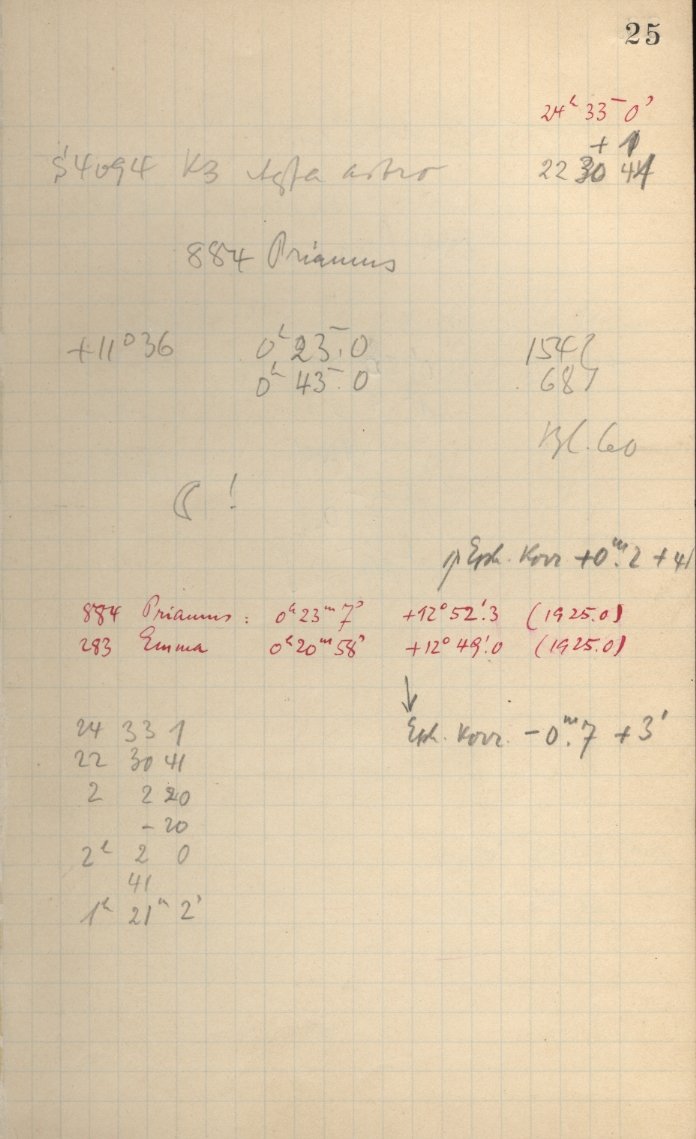 25
24ʰ 33ᵐ 0ˢ
+ 1
S4094 K3 Agfa astro 22 30 41
884 Priamus
+11°36 0ʰ 23ᵐ.0 154
0ʰ 43ᵐ.0 687
Bl. 60
!
Eph. Korr +0ᵐ.2 +41
884 Priamus: 0ʰ23ᵐ7ˢ +12°52'.3 (1925.0)
283 Emma 0ʰ20ᵐ58ˢ +12°49'.0 (1925.0)
↓
Eph. Korr. -0ᵐ.7 +3'
24 33 1
22 30 41
2 2 20
-20
2ʰ 2 0
41
1ʰ 21ᵐ 2ˢ